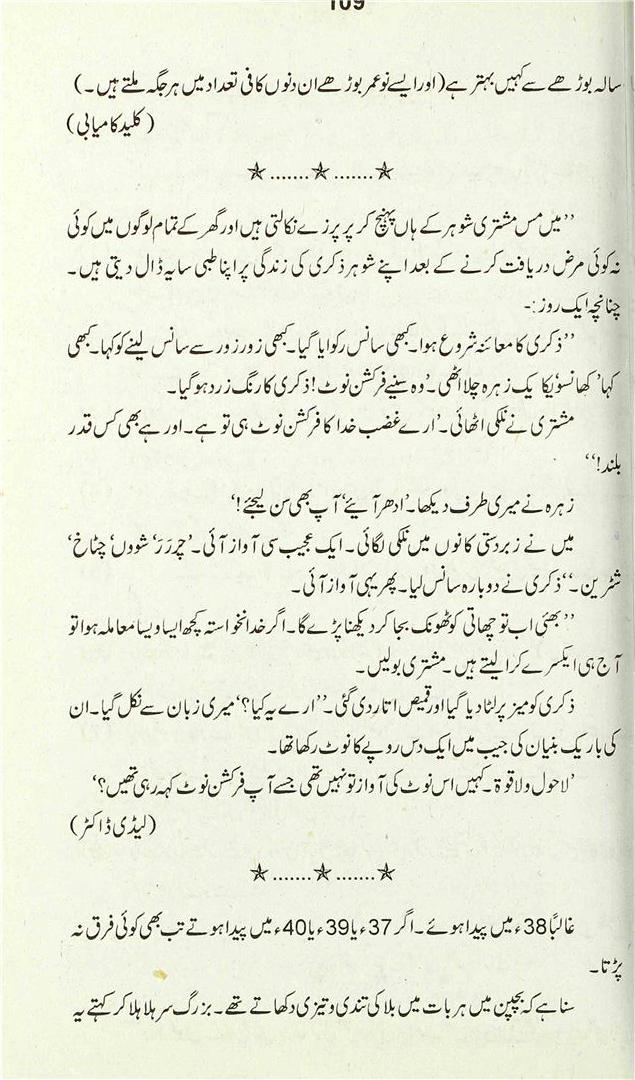 109
سالہ بوڑھے سے کہیں بہتر ہے (اور ایسے نوعمر بوڑھے ان دنوں کافی تعداد میں ہر جگہ ملتے ہیں۔)
(کلید کامیابی)
☆.......☆.......☆
’’میں مس مشتری شوہر کے ہاں پہنچ کر پر پرزے نکالتی ہیں اور گھر کے تمام لوگوں میں کوئی
نہ کوئی مرض دریافت کرنے کے بعد اپنے شوہر ذکری کی زندگی پر اپنا طبی سایہ ڈال دیتی ہیں۔
چنانچہ ایک روز:-
’’ذکری کا معائنہ شروع ہوا۔ کبھی سانس رکوایا گیا۔ کبھی زور زور سے سانس لینے کو کہا۔ کبھی
کہا’ کھانسو‘ یکایک زہرہ چلا اٹھی۔ ’وہ سنیے فرکشن نوٹ! ذکری کا رنگ زرد ہو گیا۔
مشتری نے نلکی اٹھائی۔ ’ارے غضب خدا کا فرکشن نوٹ ہی تو ہے۔ اور ہے بھی کس قدر
بلند!‘‘
زہرہ نے میری طرف دیکھا۔ ’ادھر آیئے‘ آپ بھی سن لیجئے!‘
میں نے زبردستی کانوں میں نلکی لگائی۔ ایک عجیب سی آواز آئی۔ ’چررَرَ‘ شووں‘ چٹاخ‘
شٹرین۔‘‘ ذکری نے دوبارہ سانس لیا۔ پھر یہی آواز آئی۔
’’بھئی اب تو چھاتی کو ٹھونک بجا کر دیکھنا پڑے گا۔ اگر خدانخواستہ کچھ ایسا ویسا معاملہ ہوا تو
آج ہی ایکسرے کرا لیتے ہیں۔ مشتری بولیں۔
ذکری کو میز پر لٹا دیا گیا اور قمیض اتار دی گئی۔ ’’ارے یہ کیا؟‘ میری زبان سے نکل گیا۔ ان
کی باریک بنیان کی جیب میں ایک دس روپے کا نوٹ رکھا تھا۔
’لاحول ولاقوۃ۔ کہیں اس نوٹ کی آواز تو نہیں تھی جسے آپ فرکشن نوٹ کہہ رہی تھیں؟‘
(لیڈی ڈاکٹر)
☆.......☆.......☆
غالبًا 38ء میں پیدا ہوئے۔ اگر 37ء یا 39ء یا 40ء میں پیدا ہوتے تب بھی کوئی فرق نہ
پڑتا۔
سنا ہے کہ بچپن میں ہر بات میں بلا کی تندی و تیزی دکھاتے تھے۔ بزرگ سر ہلا ہلا کر کہتے یہ